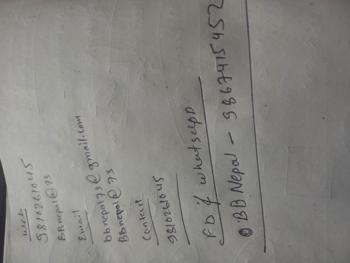 user
9810261045
BBnepal@73
Email
bbnepal73@gmail.com
BBnepal@73
Contact
9810261045
FD of whatsapp
BB Nepal - 9867415452